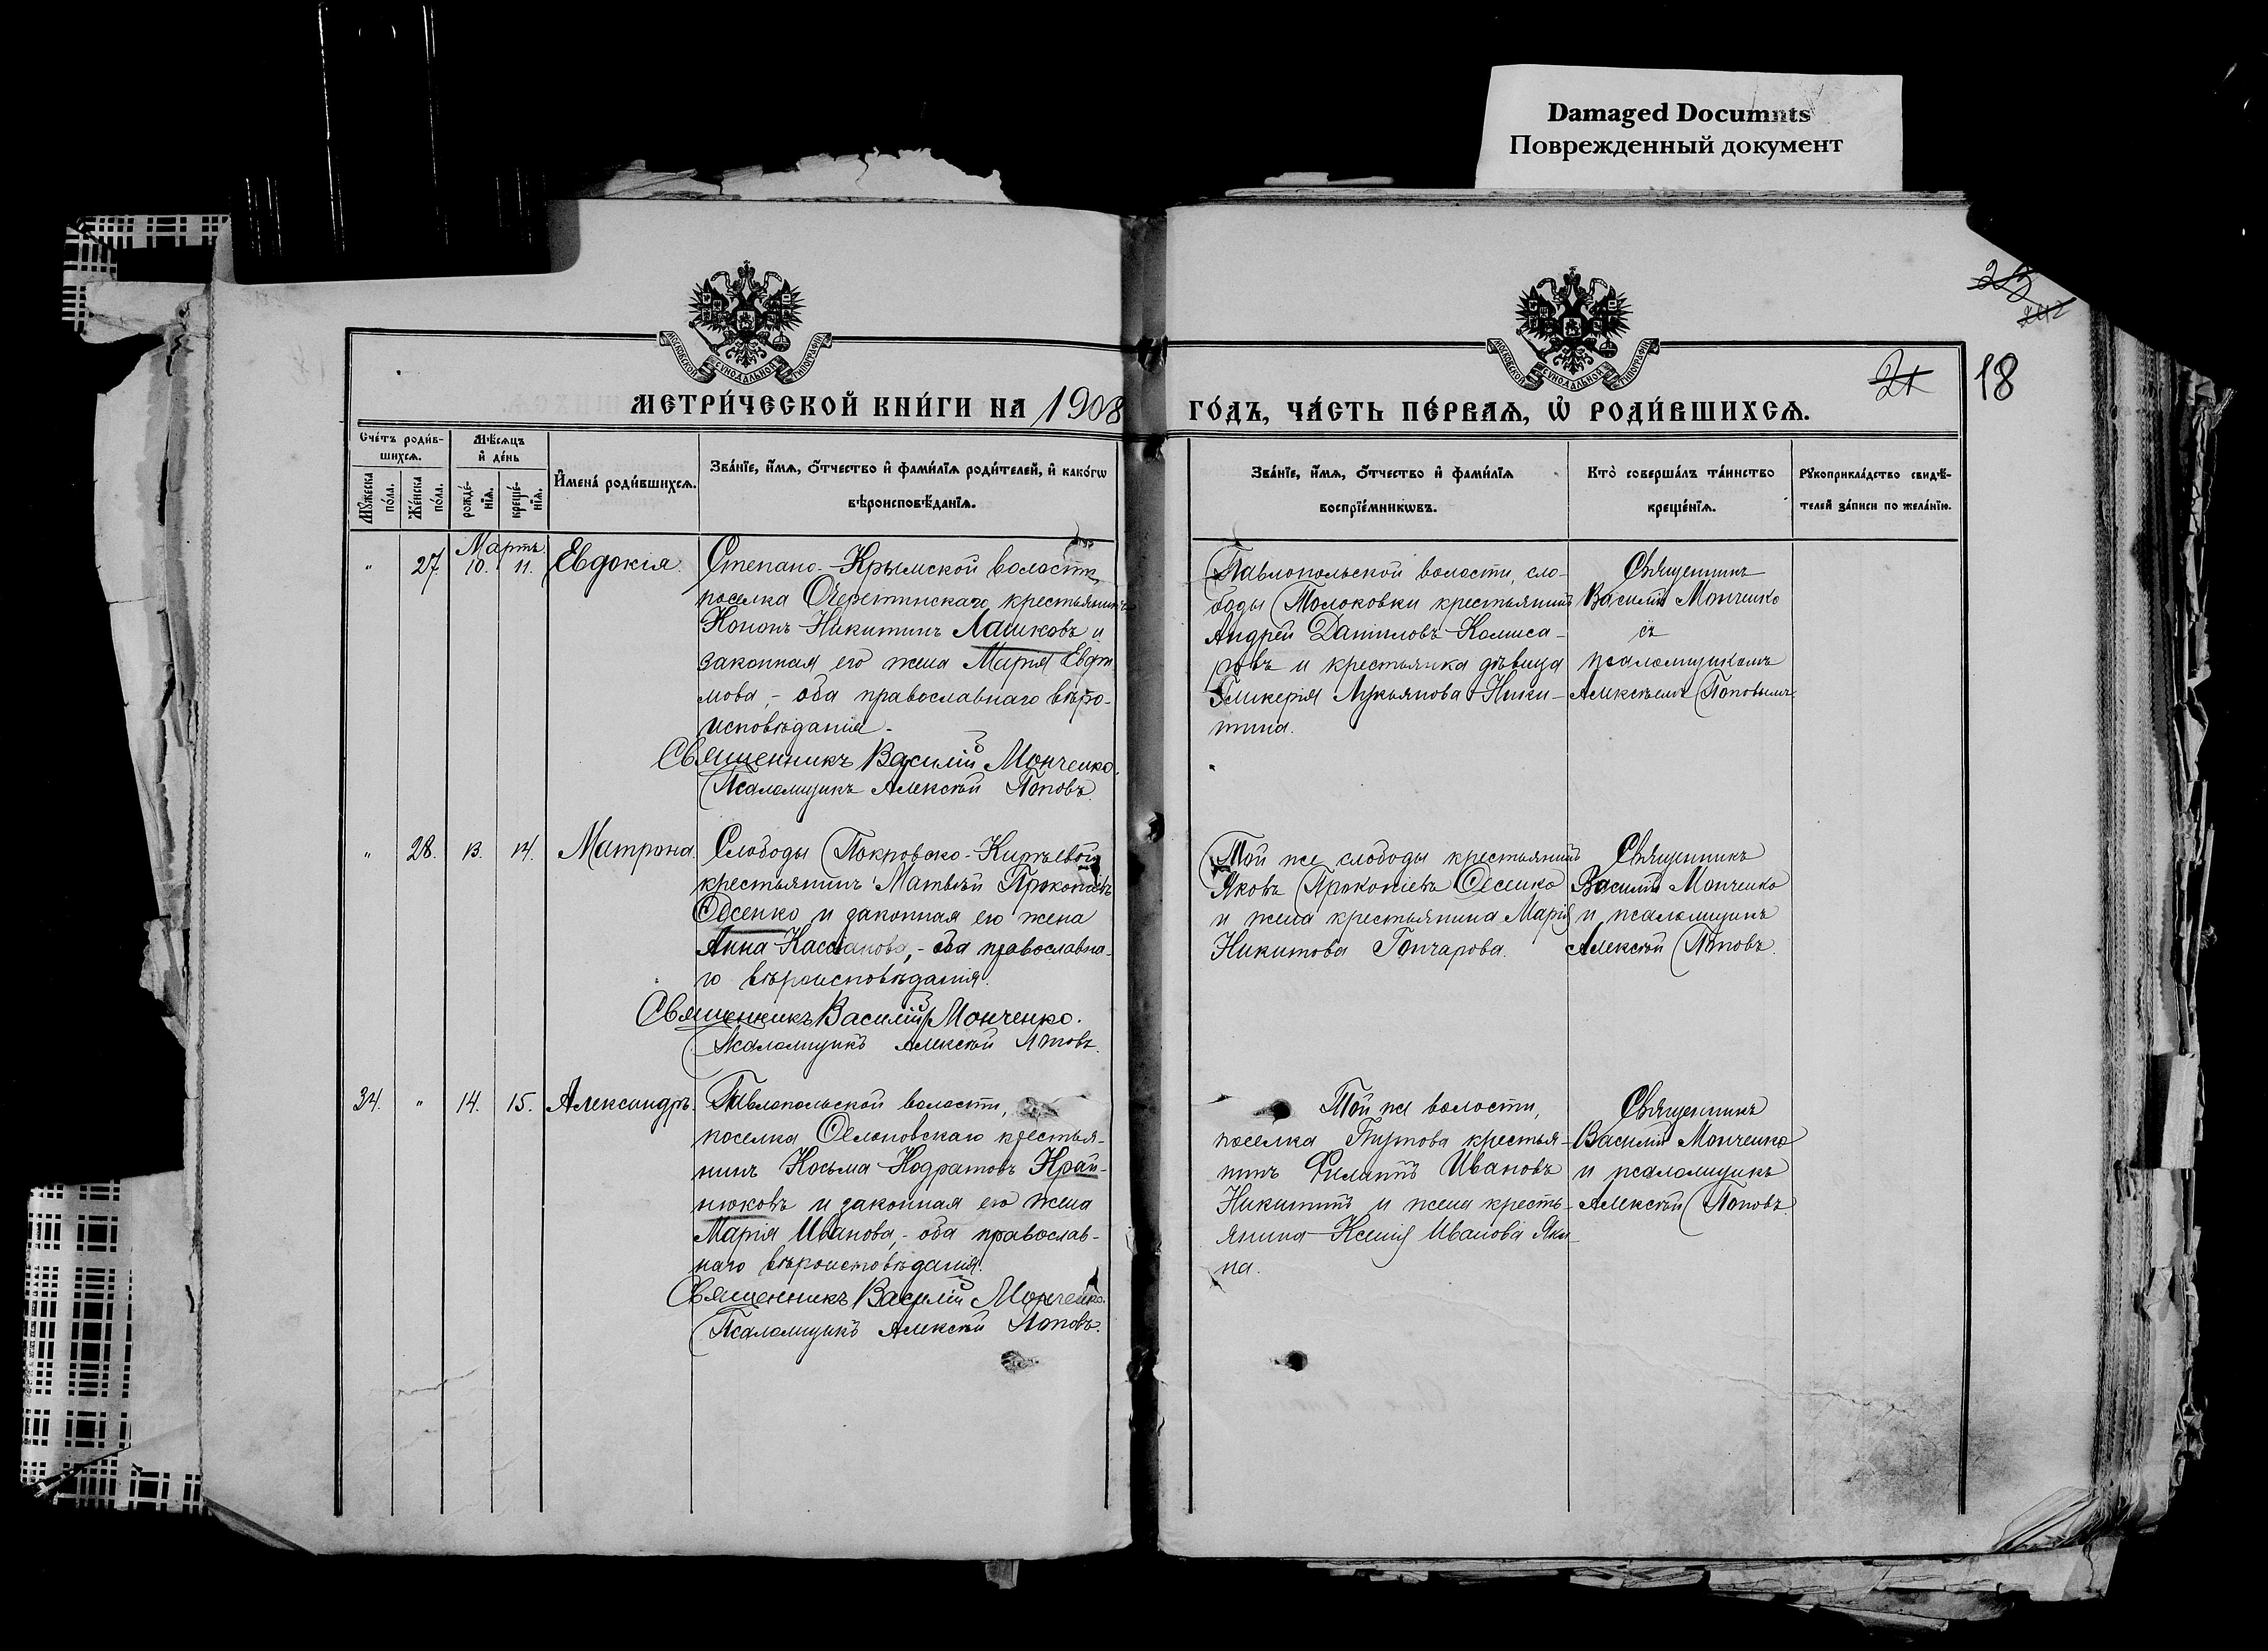 Damaged Documnts
Поврежденный документ
МОСКОВСКОЙ СУНОДАЛЬНОЙ ТИПОГРАФІИ
МОСКОВСКОЙ СУНОДАЛЬНОЙ ТИПОГРАФІИ
21
18
МЕТРИ́ЧЕСКОЙ КНИ́ГИ НА 1908 ГО́ДЪ, ЧА́СТЬ ПЕ́РВАѦ, Ѡ҆ РОДИ́ВШИХСѦ.
Сче́тъ роди́в-
шихсѧ.
Мꙋ́жеска по́ла.
Же́нска по́ла.
Мѣ́сѧцъ
и҆ де́нь
рожде́-
нїѧ.
креще́-
нїѧ.
И҆мена̀ роди́вшихсѧ.
Зва́нїе, и҆́мѧ, ѻ҆́тчество и҆ фами́лїѧ роди́телей, и҆ како́гѡ
вѣроисповѣ́данїѧ.
Зва́нїе, и҆́мѧ, ѻ҆́тчество и҆ фами́лїѧ
воспрїе́мникѡвъ.
Кто̀ соверша́лъ та́инство
креще́нїѧ.
Рꙋкоприкла́дство свидѣ́-
телей за́писи по жела́нїю.
" 27. Мартъ 10. 11. Евдокія.
Степано-Крымской волости,
поселка Очеретинскаго крестьянинъ
Кононъ Никитинъ Лашковъ и
законная его жена Марія Евдо
мова, - оба православнаго вѣро-
исповѣданія.
Священникъ Василій Монченко.
Псаломщикъ Алексѣй Поповъ.
Павлопольской волости, сло-
боды Толоковки крестьянинъ
Андрей Даниловъ Комиса-
ровъ и крестьянка дѣвица
Гликерія Лукьянова Ники-
тина.
Священникъ
Василій Монченко
съ
псаломщикомъ
Алексѣемъ Поповымъ
" 28. 13. 14. Матрона.
Слободы Покровско-Кирѣевой
крестьянинъ Матвѣй Прокопіевъ
Овсенко и законная его жена
Анна Кассіанова, - оба православна-
го вѣроисповѣданія.
Священникъ Василій Монченко.
Псаломщикъ Алексѣй Поповъ.
Той же слободы крестьянинъ
Яковъ Прокопіевъ Овсенко
и жена крестьянина Марія
Никитова Гончарова.
Священникъ
Василій Монченко
и псаломщикъ
Алексѣй Поповъ.
34. " 14. 15. Александръ.
Павлопольской волости,
поселка крестья-
нинъ Косьма Кодратовъ Край-
нюковъ и законная его жена
Марія Иванова, - оба православ-
наго вѣроисповѣданія.
Священникъ Василій Монченко.
Псаломщикъ Алексѣй Поповъ.
Той же волости,
поселка крестья-
нинъ Филиппъ Ивановъ
Никитинъ и жена кресть-
янина Ксенія Иванова
на.
Священникъ
Василій Монченко
и псаломщикъ
Алексѣй Поповъ.